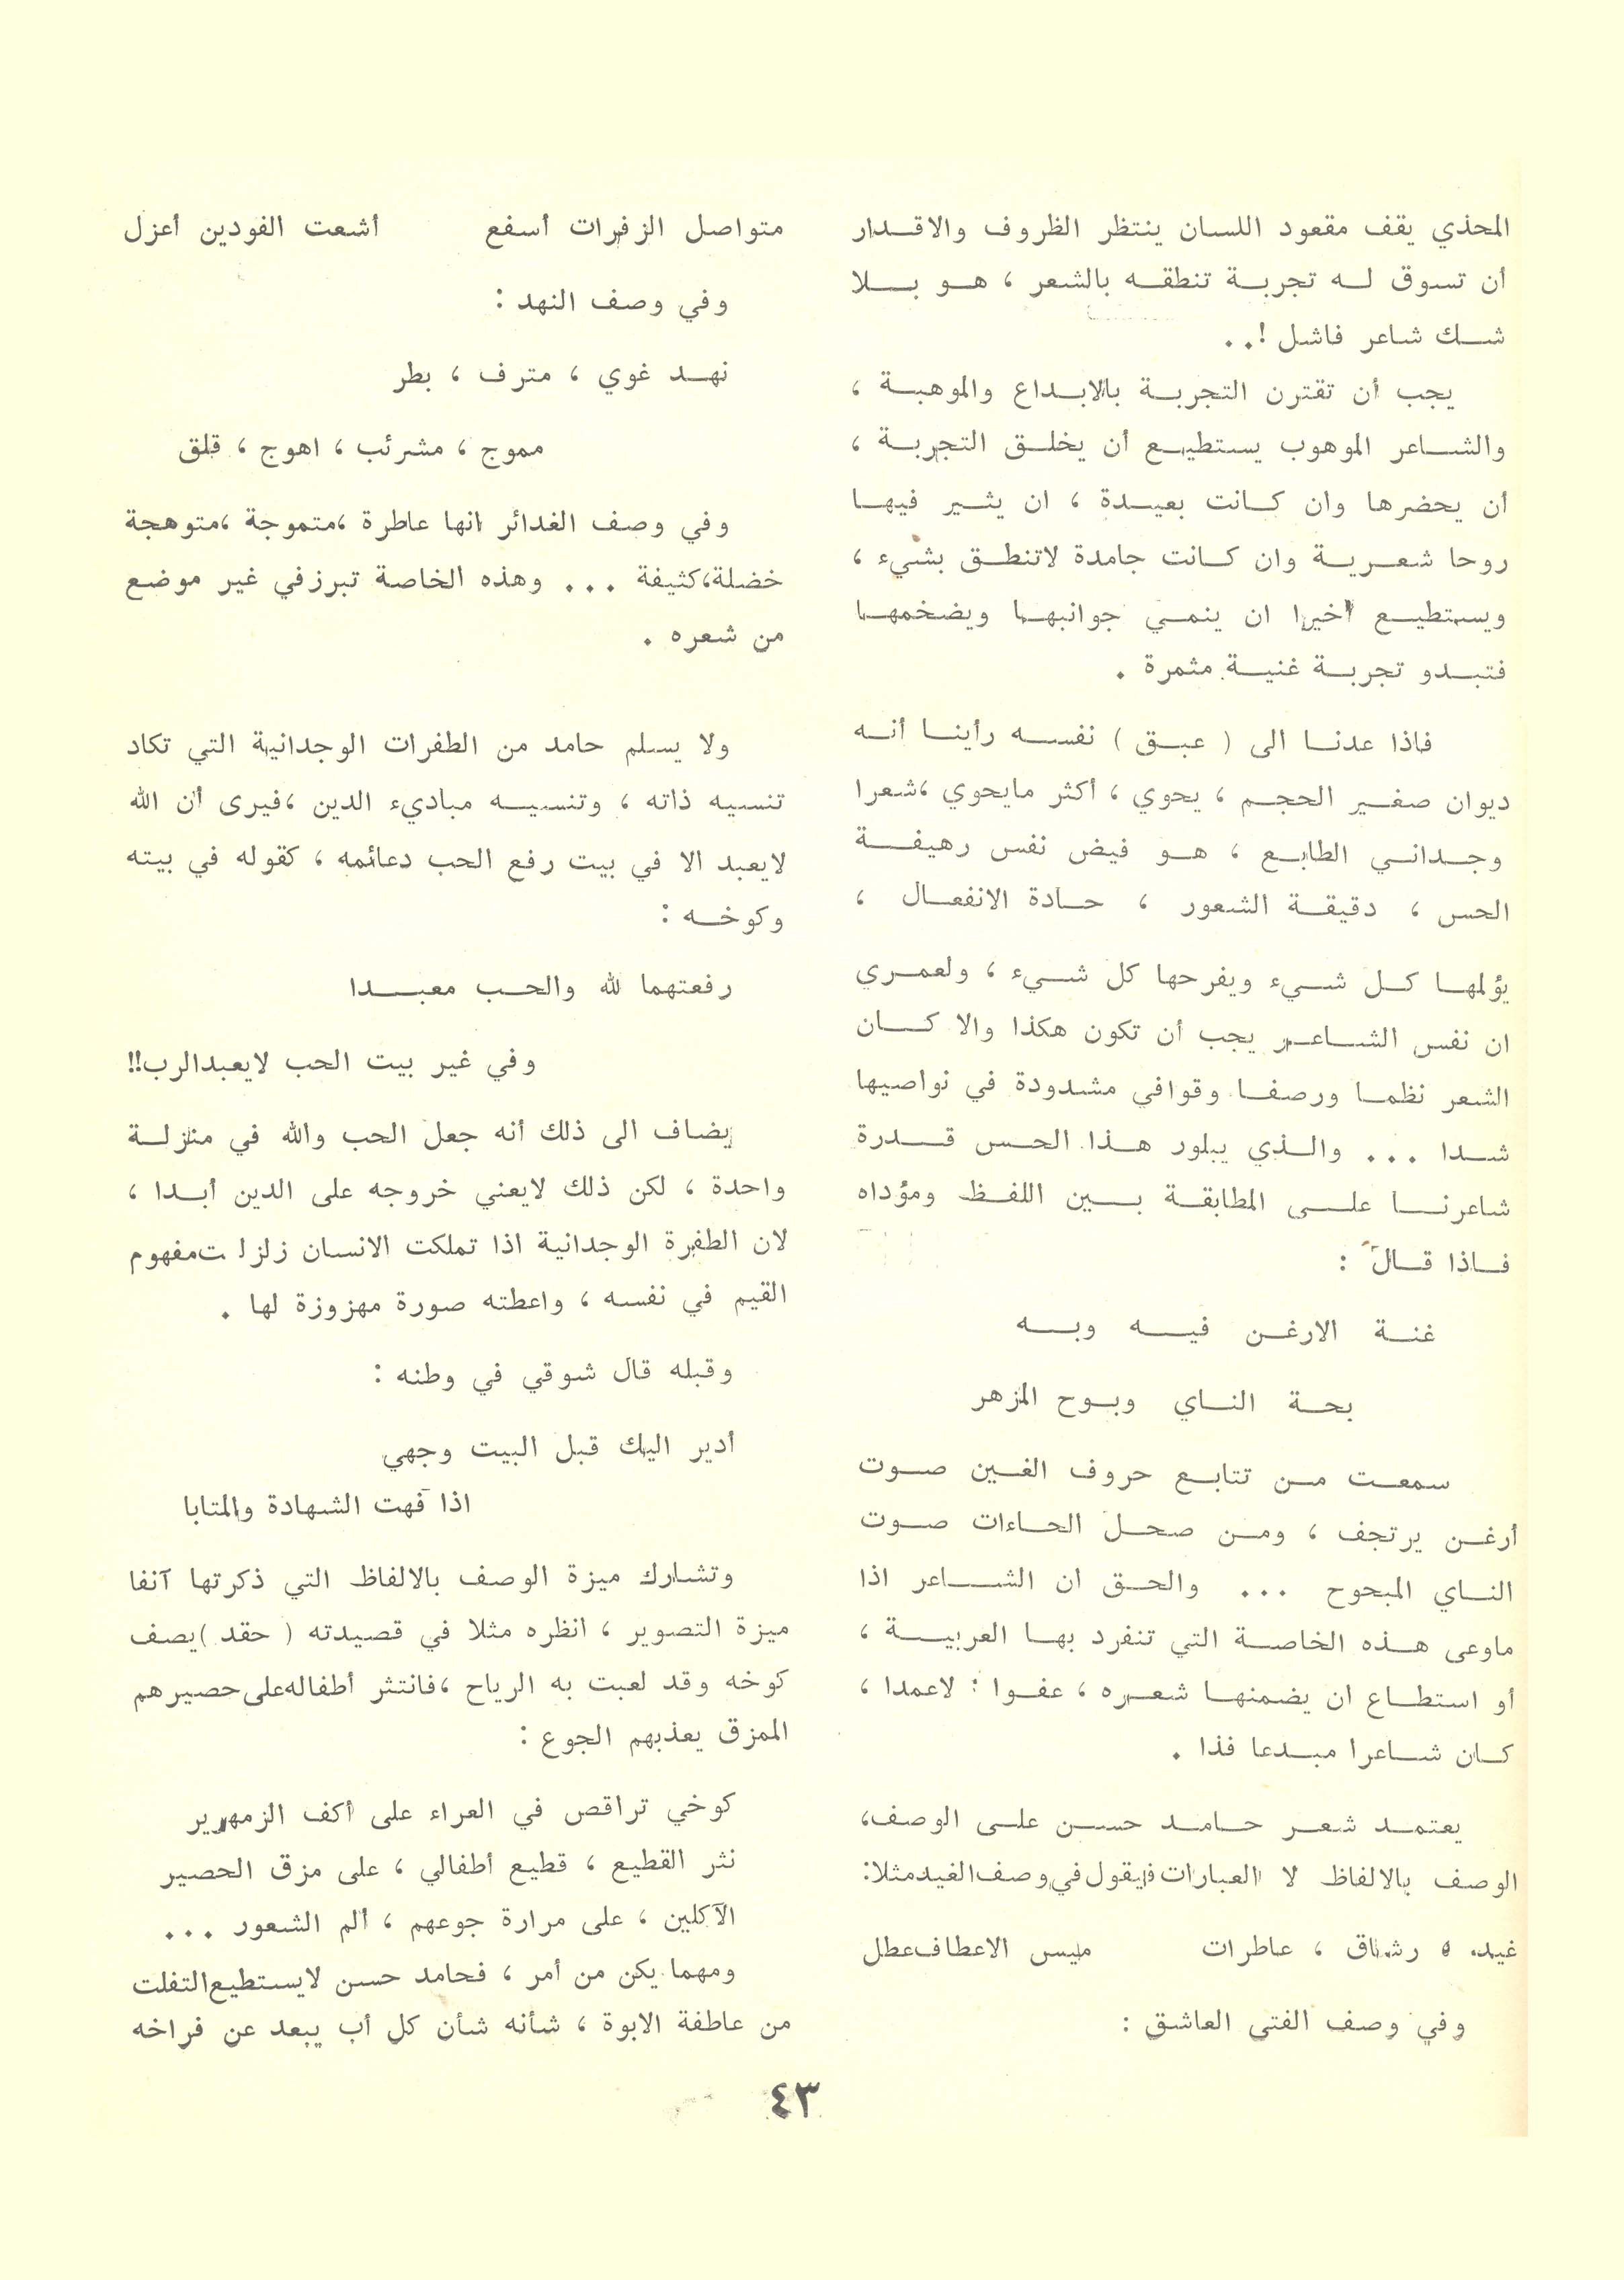 المحذي يقف مقعود اللسان ينتظر الظروف والاقدار
أن تسوق له تجربة تنطقه بالشعر ، هو بلا
شك شاعر فاشل !..
يجب أن تقترن التجربة بالابداع والموهبة ،
والشاعر الموهوب يستطيع أن يخلق التجربة ،
أن يحضرها وان كانت بعيدة ، ان يثير فيها
روحا شعرية وان كانت جامدة لاتنطق بشيء ،
ويستطيع اخيرا ان ينمي جوانبها ويضخمها
فتبدو تجربة غنية مثمرة .
فاذا عدنا الى ( عبق ) نفسه رأينا أنه
ديوان صغير الحجم ، يحوي ، أكثر مايحوي ،شعرا
وجداني الطابع ، هو فيض نفس رهيفة
الحس ، دقيقة الشعور ، حادة الانفعال ،
يؤلمها كل شيء ويفرحها كل شيء ، ولعمري
ان نفس الشاعر يجب أن تكون هكذا والا كان
الشعر نظما ورصفا وقوافي مشدودة في نواصيها
شدا ... والذي يبلور هذا الحس قدرة
شاعرنا على المطابقة بين اللفظ ومؤداه
فاذا قال :
غنة الارغن فيه وبه
بحة الناي وبوح المزهر
سمعت من تتابع حروف الغين صوت
أرغن يرتجف ، ومن صحل الحاءات صوت
الناي المبحوح ... والحق ان الشاعر اذا
ماوعى هذه الخاصة التي تنفرد بها العربية ،
أو استطاع ان يضمنها شعره ، عفوا : لاعمدا ،
كان شاعرا مبدعا فذا .
يعتمد شعر حامد حسن على الوصف،
الوصف بالالفاظ لا العبارات فيقول في وصف الغيد مثلا:
غيد ، رشاق ، عاطرات ميس الاعطاف عطل
وفي وصف الفتى العاشق :
متواصل الزفرات أسفع أشعت الفودين أعزل
وفي وصف النهد :
نهد غوي ، مترف ، بطر
مموج ، مشرئب ، اهوج ، قلق
وفي وصف الغدائر انها عاطرة ،متموجة ،متوهجة
خضلة،كثيفة ... وهذه الخاصة تبرزفي غير موضع
من شعره .
ولا يسلم حامد من الطفرات الوجدانية التي تكاد
تنسيه ذاته ، وتنسيه مباديء الدين ،فيرى أن الله
لايعبد الا في بيت رفع الحب دعائمه ، كقوله في بيته
وكوخه :
رفعتهما لله والحب معبدا
وفي غير بيت الحب لايعبدالرب!!
يضاف الى ذلك أنه جعل الحب والله في منزلة
واحدة ، لكن ذلك لايعني خروجه على الدين أبدا ،
لان الطفرة الوجدانية اذا تملكت الانسان زلزلت مفهوم
القيم في نفسه ، واعطته صورة مهزوزة لها .
وقبله قال شوقي في وطنه :
أدير اليك قبل البيت وجهي
اذا فهت الشهادة والمتابا
وتشارك ميزة الوصف بالالفاظ التي ذكرتها آنفا
ميزة التصوير ، انظره مثلا في قصيدته ( حقد )يصف
كوخه وقد لعبت به الرياح ،فانتثر أطفاله على حصيرهم
الممزق يعذبهم الجوع :
كوخي تراقص في العراء على أكف الزمهرير
نثر القطيع ، قطيع أطفالي ، على مزق الحصير
الآكلين ، على مرارة جوعهم ، ألم الشعور ...
ومهما يكن من أمر ، فحامد حسن لايستطيع التفلت
من عاطفة الابوة ، شأنه شأن كل أب يبعد عن فراخه
٤٣